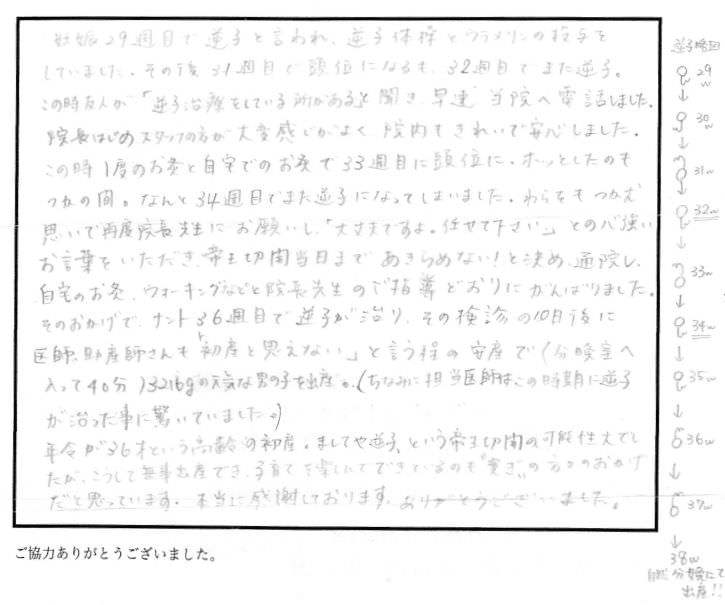 妊娠29週目で逆子と言われ、逆子体操とウラメリンの投与を
していました。その後31週目で頭位になるも、32週目でまた逆子。
この時友人が「逆子治療をしている所がある」と聞き、早速当院へ電話しました。
院長はじめスタッフの方が大変感じがよく、院内もきれいで安心しました。
この時1度のお灸と自宅でのお灸で33週目に頭位に。ホッとしたのも
つかの間。なんと34週目でまた逆子になってしまいました。わらをもつかむ
思いで再度院長先生にお願いし、「大丈夫ですよ。任せて下さい」との心強い
お言葉をいただき、帝王切開当日まであきらめない!と決め、通院し、
自宅のお灸、ウォーキングなどと院長先生のご指導どおりにがんばりました。
そのおかげで、ナント36週目で逆子が治り、その検診の10日後に
医師、助産師さんも「初産と思えない」と言う程の安産で(分娩室へ
入って40分)3216gの元気な男の子を出産。(ちなみに担当医師はこの時期に逆子
が治った事に驚いていました。)
年令が36才という高齢の初産。ましてや逆子、という帝王切開の可能性大でし
たが、こうして無事出産でき、子育てを楽しんでできているのも の方々のおかげ
だと思っています。本当に感謝しております。ありがとうございました。
ご協力ありがとうございました。
逆子略図
29w
↓
30w
↓
31w
↓
32w
↓
33w
↓
34w
↓
35w
↓
36w
↓
37w
↓
38w
自然分娩にて
出産!!